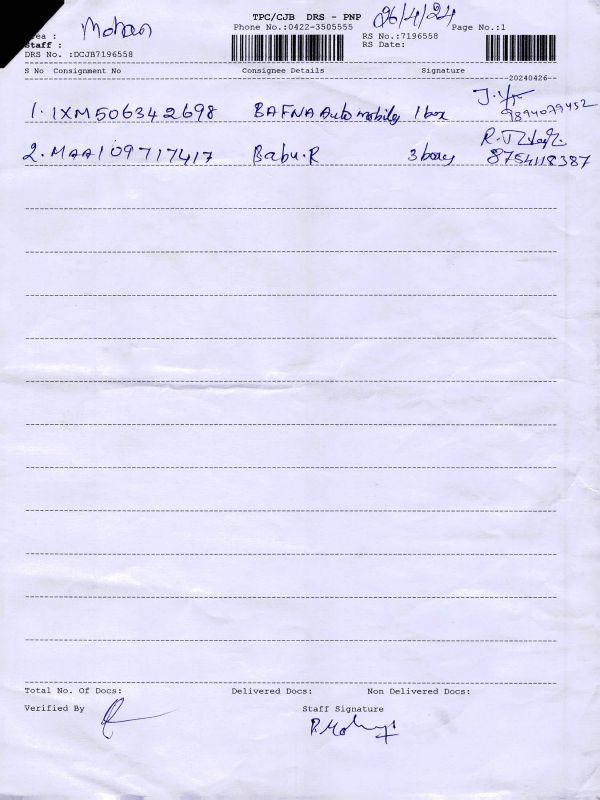 TPC/CJB DRS - PNP 26/4/24
Area : Mohan Phone No.:0422-3505555 RS No.:7196558 Page No.:1
Staff : RS Date:
DRS No. :DCJB7196558
S No Consignment No Consignee Details Signature
20240426--
1. IXM506342698 BAFNA Automobiles 1 box 9894079452
2. MAA109717417 Babu.R 3 boxes 8754118387
Total No. Of Docs: Delivered Docs: Non Delivered Docs:
Verified By Staff Signature